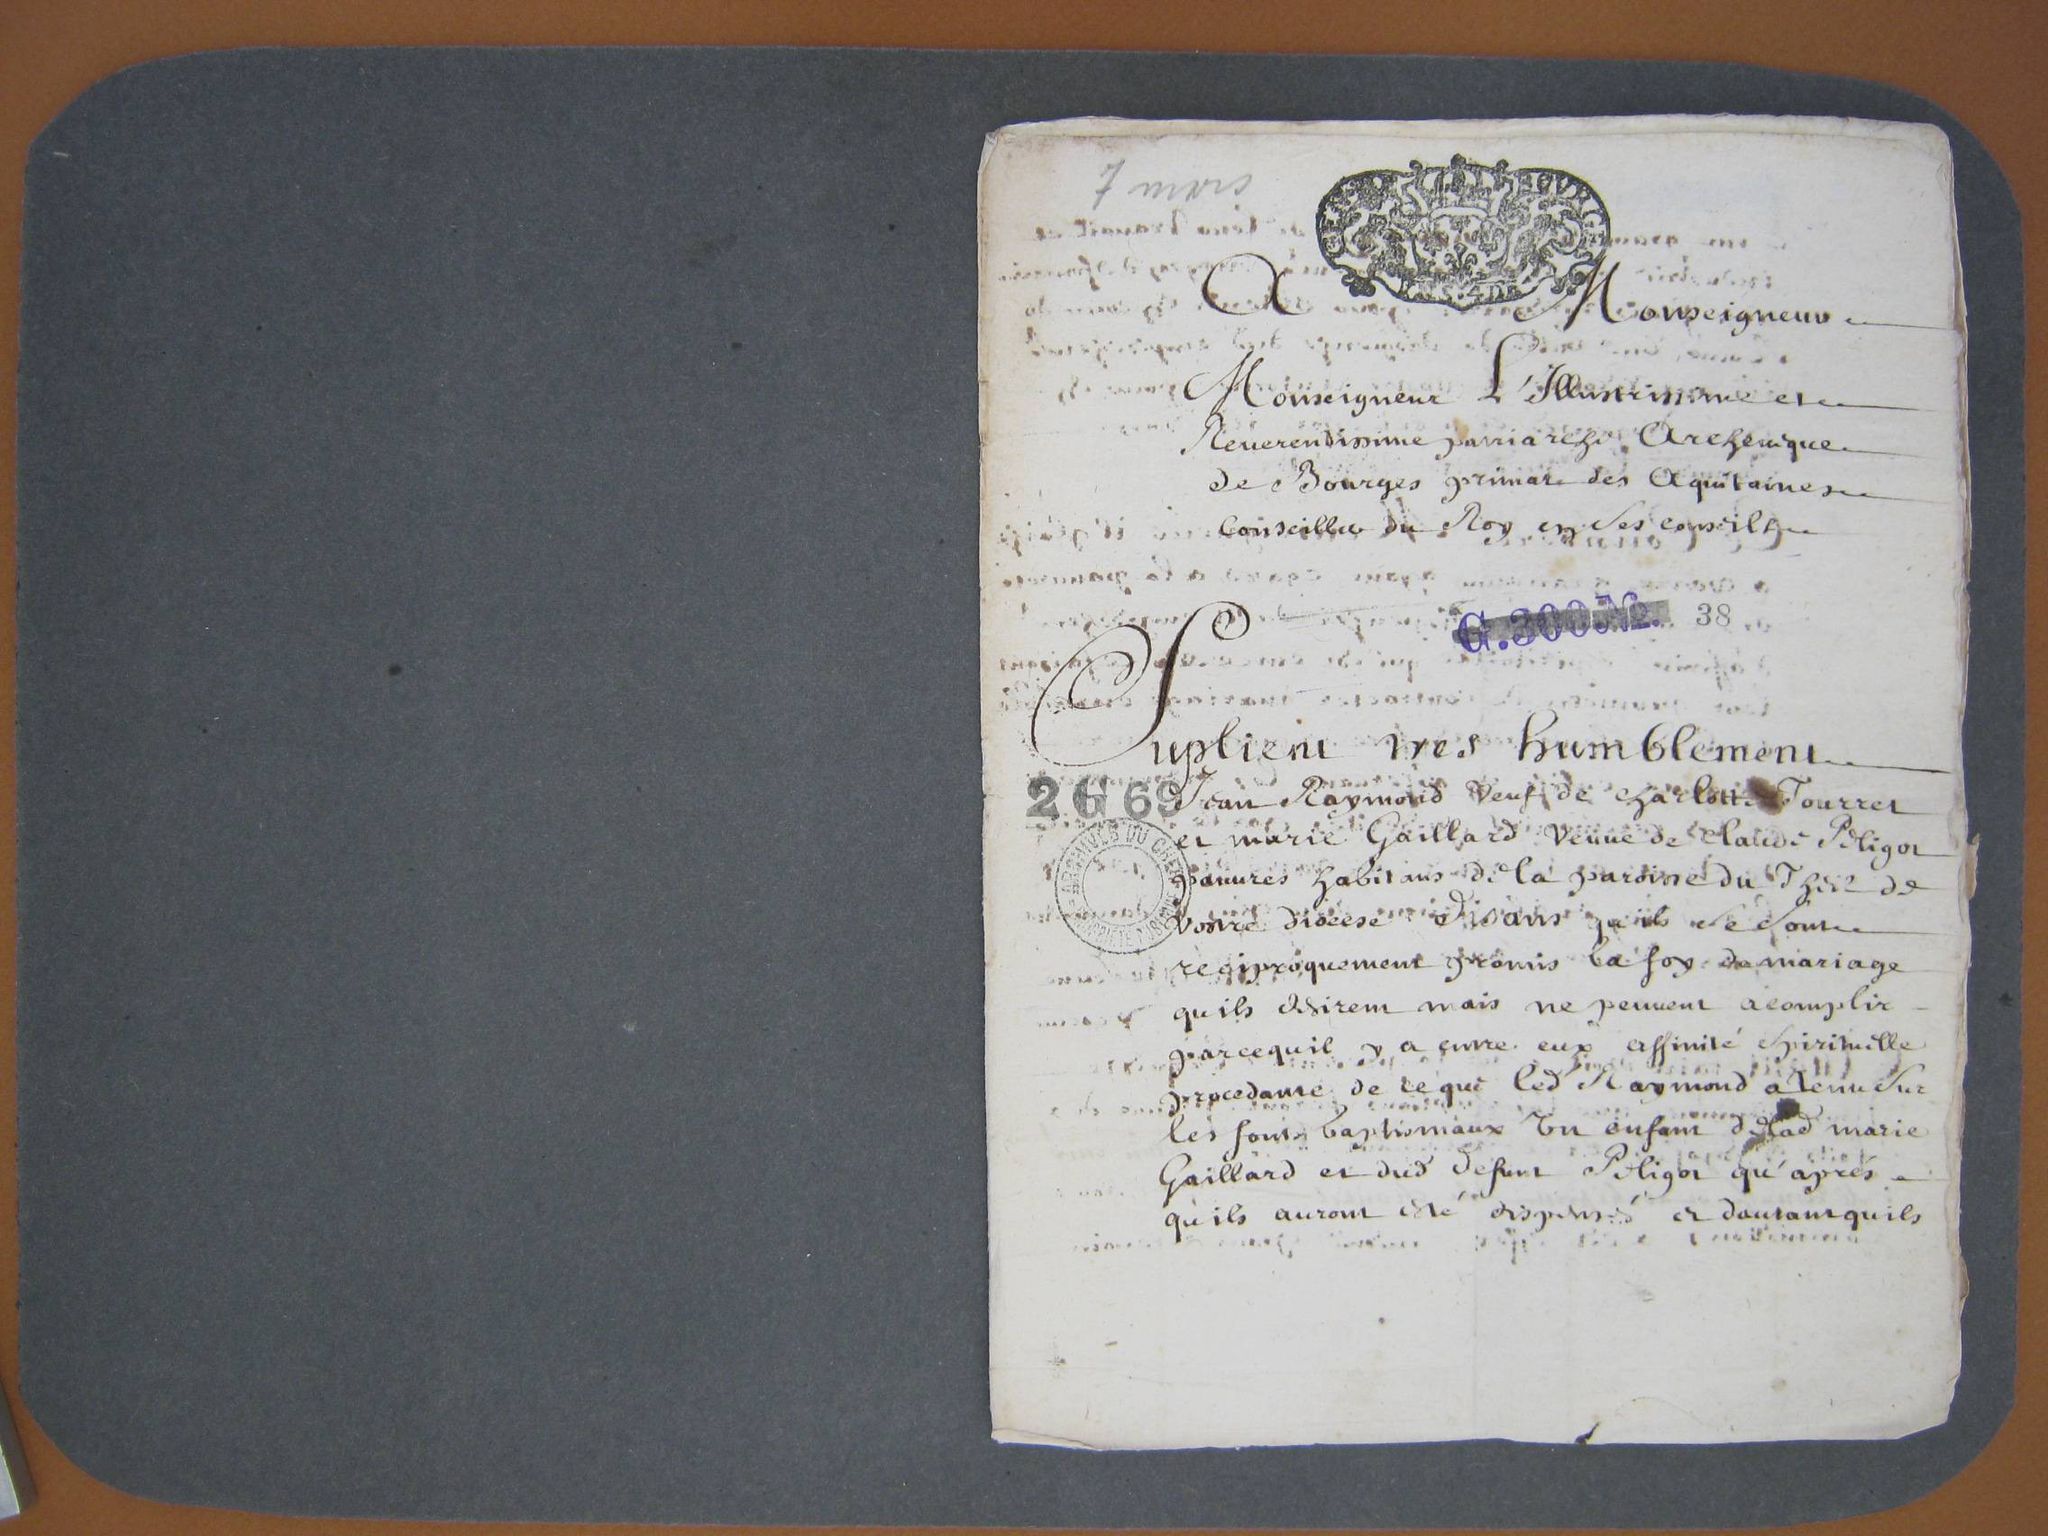 7 mars
A Monseigneur
Monseigneur L'Illustrissime et
Reuerendissime patriarche Archeuêque
de Bourges primat des Aquitaines
Conseiller du Roy en Ses conseils
G.300 No. 38
Suplient tres humblement
2 G 69
Jean Raymond Veuf de charlotte Tourret
et marie Gaillard Veuue de claude Peligot
pauures habitans de la paroisse du
vostre diocese disans qu'ils se sont
reciproquement promis la foy de mariage
qu'ils desirent mais ne peuuent acomplir
parcequil y a entre eux affinité spirituelle
procedante de ce que led Raymond a tenu Sur
les fonts baptismaux Un enfant delad marie
Gaillard et dud defunt Peligot qu'aprés
qu'ils auront eté dispensés et dautant quils
ARCHIVES DU CHER